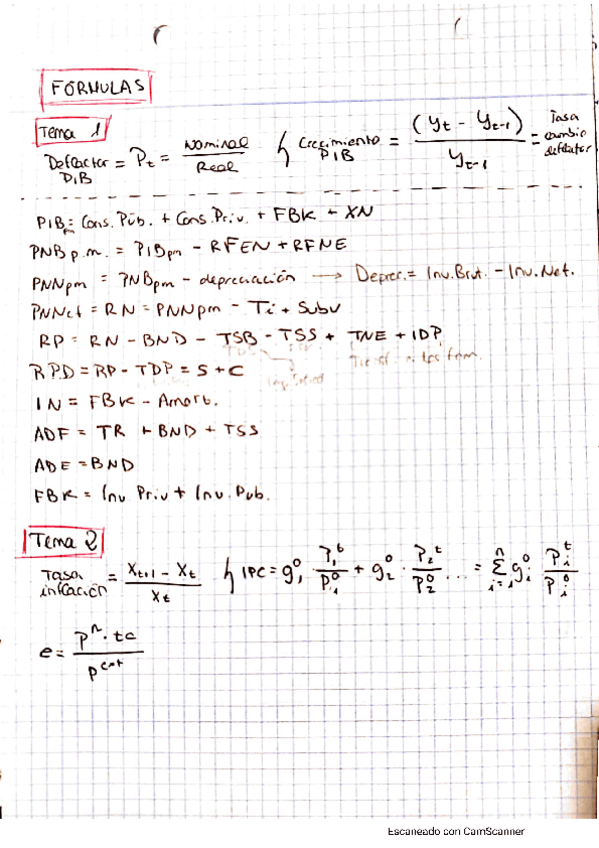 FÓRMULAS
Tema 1
Deflactor PIB = Pt = Nominal / Real ↳ Crecimiento PIB = (yt - yt-1) / yt-1 = Tasa cambio deflactor
PIBpm = Cons. Púb. + Cons. Priv. + FBK + XN
PNB p.m. = PIBpm - RFEN + RFNE
PNNpm = PNBpm - depreciación → Deprec. = Inv. Brut. - Inv. Net.
PNNct = RN = PNNpm - Ti + Subv
RP = RN - BND - TSB - TSS + TNE + IDP
RPD = RP - TDP = S + C
IN = FBK - Amort.
ADF = TR + BND + TSS
ADE = BND
FBK = Inv. Priv + Inv. Pub.
Tema 2
Tasa inflación = (Xt+1 - Xt) / Xt ↳ IPC = g₁⁰ · P₁ᵗ / P₁⁰ + g₂⁰ · P₂ᵗ / P₂⁰ ... = Σⁿᵢ₌₁ gᵢ⁰ Pᵢᵗ / Pᵢ⁰
e = Pⁿ · tc / Pext
Escaneado con CamScanner